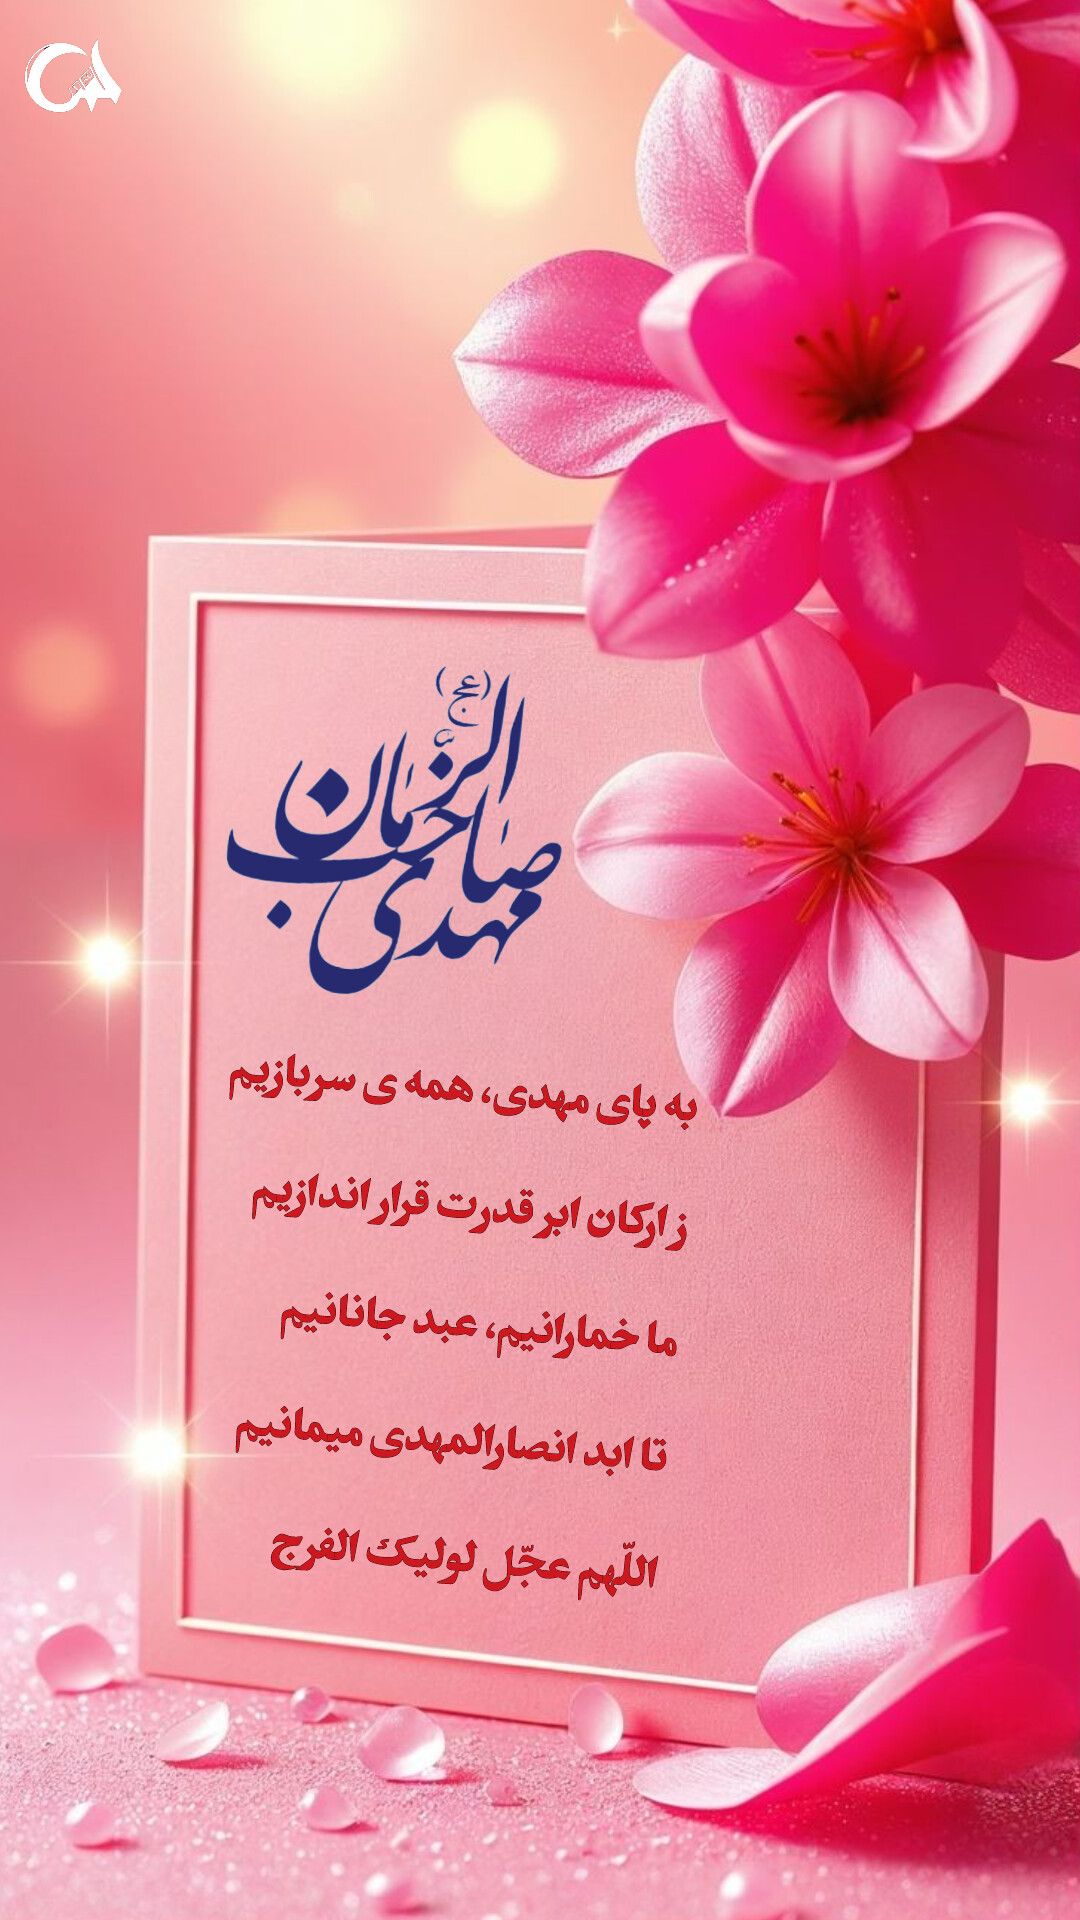 (عج)
مهدی صاحب الزمان
به پای مهدی، همه ی سربازیم
ز ارکان ابر قدرت قرار اندازیم
ما خمارانیم، عبد جانانیم
تا ابد انصارالمهدی میمانیم
اللّهم عجّل لولیک الفرج